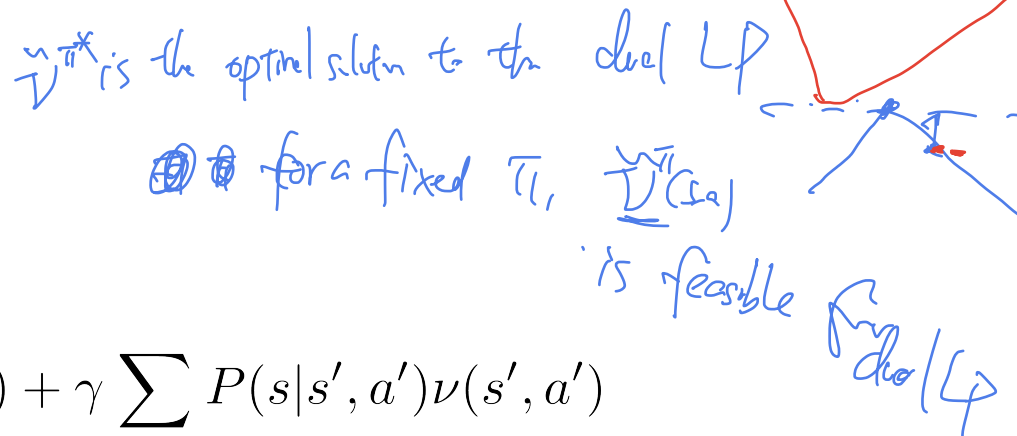 ν̃^π* is the optimal solution to the dual LP
for a fixed π, ν̃^π(s,a)
is feasible for
dual LP
) + γ ∑ P(s|s′, a′)ν(s′, a′)